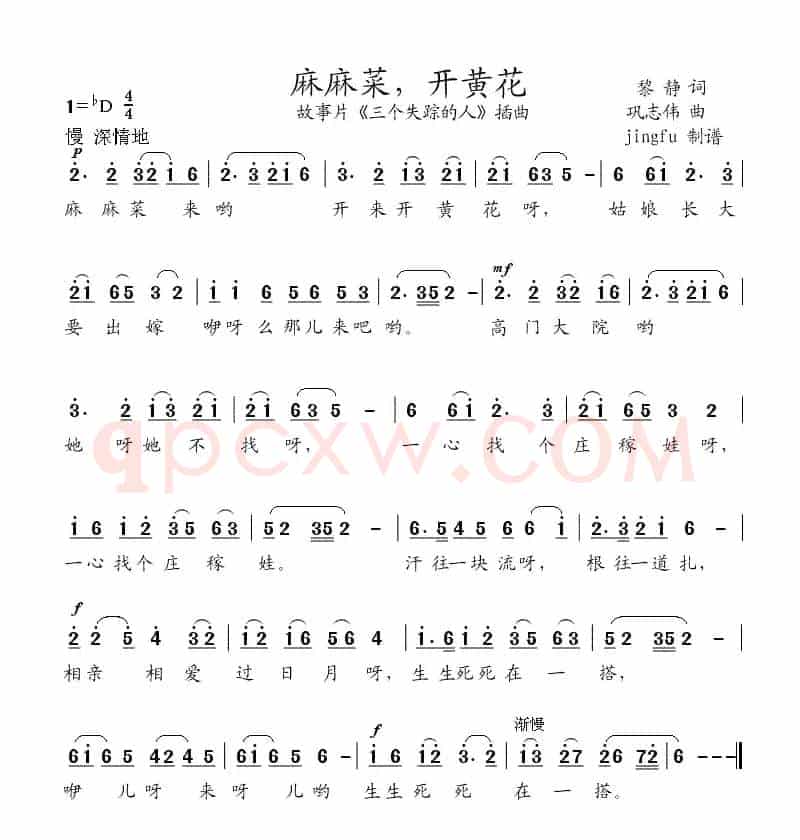 麻麻菜，开黄花
1=♭D 4/4
故事片《三个失踪的人》插曲
黎静 词
巩志伟 曲
慢 深情地
jingfu 制谱
p
2· 2 3216 | 2·3216 | 3· 2 13 21 | 21 635 - | 6 61 2· 3 |
麻麻菜 来哟 开来开黄花呀， 姑娘长大
mf
21 65 3 2 | 11 6 56 53 | 2·352 - | 2· 2 32 16 | 2·3 21 6 |
要出嫁 咿呀么那儿来吧哟。 高门大院哟
3· 2 13 21 | 21 635 - | 6 61 2· 3 | 21 65 3 2 |
她呀她不找呀， 一心找个庄稼娃呀，
qpcxw.COM
16 12 35 63 | 52 352 - | 6·545 66 1 | 2·321 6 - |
一心找个庄稼娃。 汗往一块流呀， 根往一道扎，
f
2 25 4 32 | 12 16 56 4 | 1·612 535 | 52 352 - |
相亲相爱过日月呀，生生死死在一搭，
f
渐慢
6165 4245 | 6165 452 | 16 12 3·2 | 13 27 26 72 | 6 --- ‖
咿儿呀来呀儿哟生生死死在一搭。